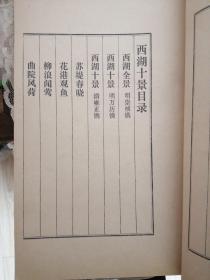 西湖十景目录
西湖全景 明崇祯镌
西湖十景 明万历镌
西湖十景 清雍正镌
苏堤春晓
花港观鱼
柳浪闻莺
曲院风荷